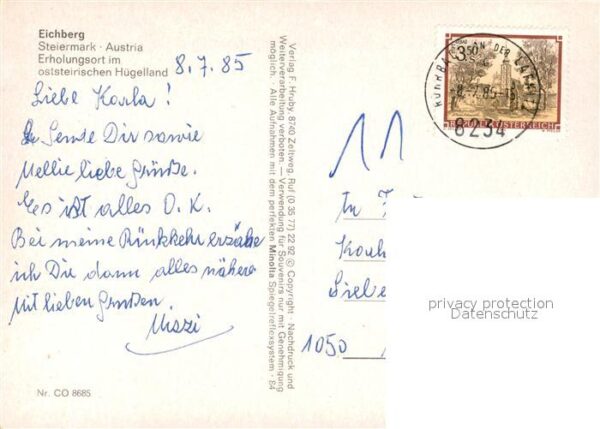 Eichberg
Steiermark · Austria
Erholungsort im
oststeirischen Hügelland
8.7.85
Liebe Karla!
Sende Dir sowie
Nellie liebe Grüsse.
Es ist alles O.K.
Bei meine Rückkehr erzähle
ich Die dann alles nähere
Mit lieben Grüssen.
Nr. CO 8685
Verlag F. Hruby, 8740 Zeltweg, Ruf (0 35 77) 22 92 © Copyright · Nachdruck und
Weiterverarbeitung verboten. — Verwendung für Souvenirs nur mit Genehmigung
möglich. · Alle Aufnahmen mit dem perfekten Minolta Spiegelreflexsystem · 84
S 3.50
REPUBLIK ÖSTERREICH
ROHRBACH AN DER LAFNITZ
8.-7.85-15
8234
1050
privacy protection
Datenschutz